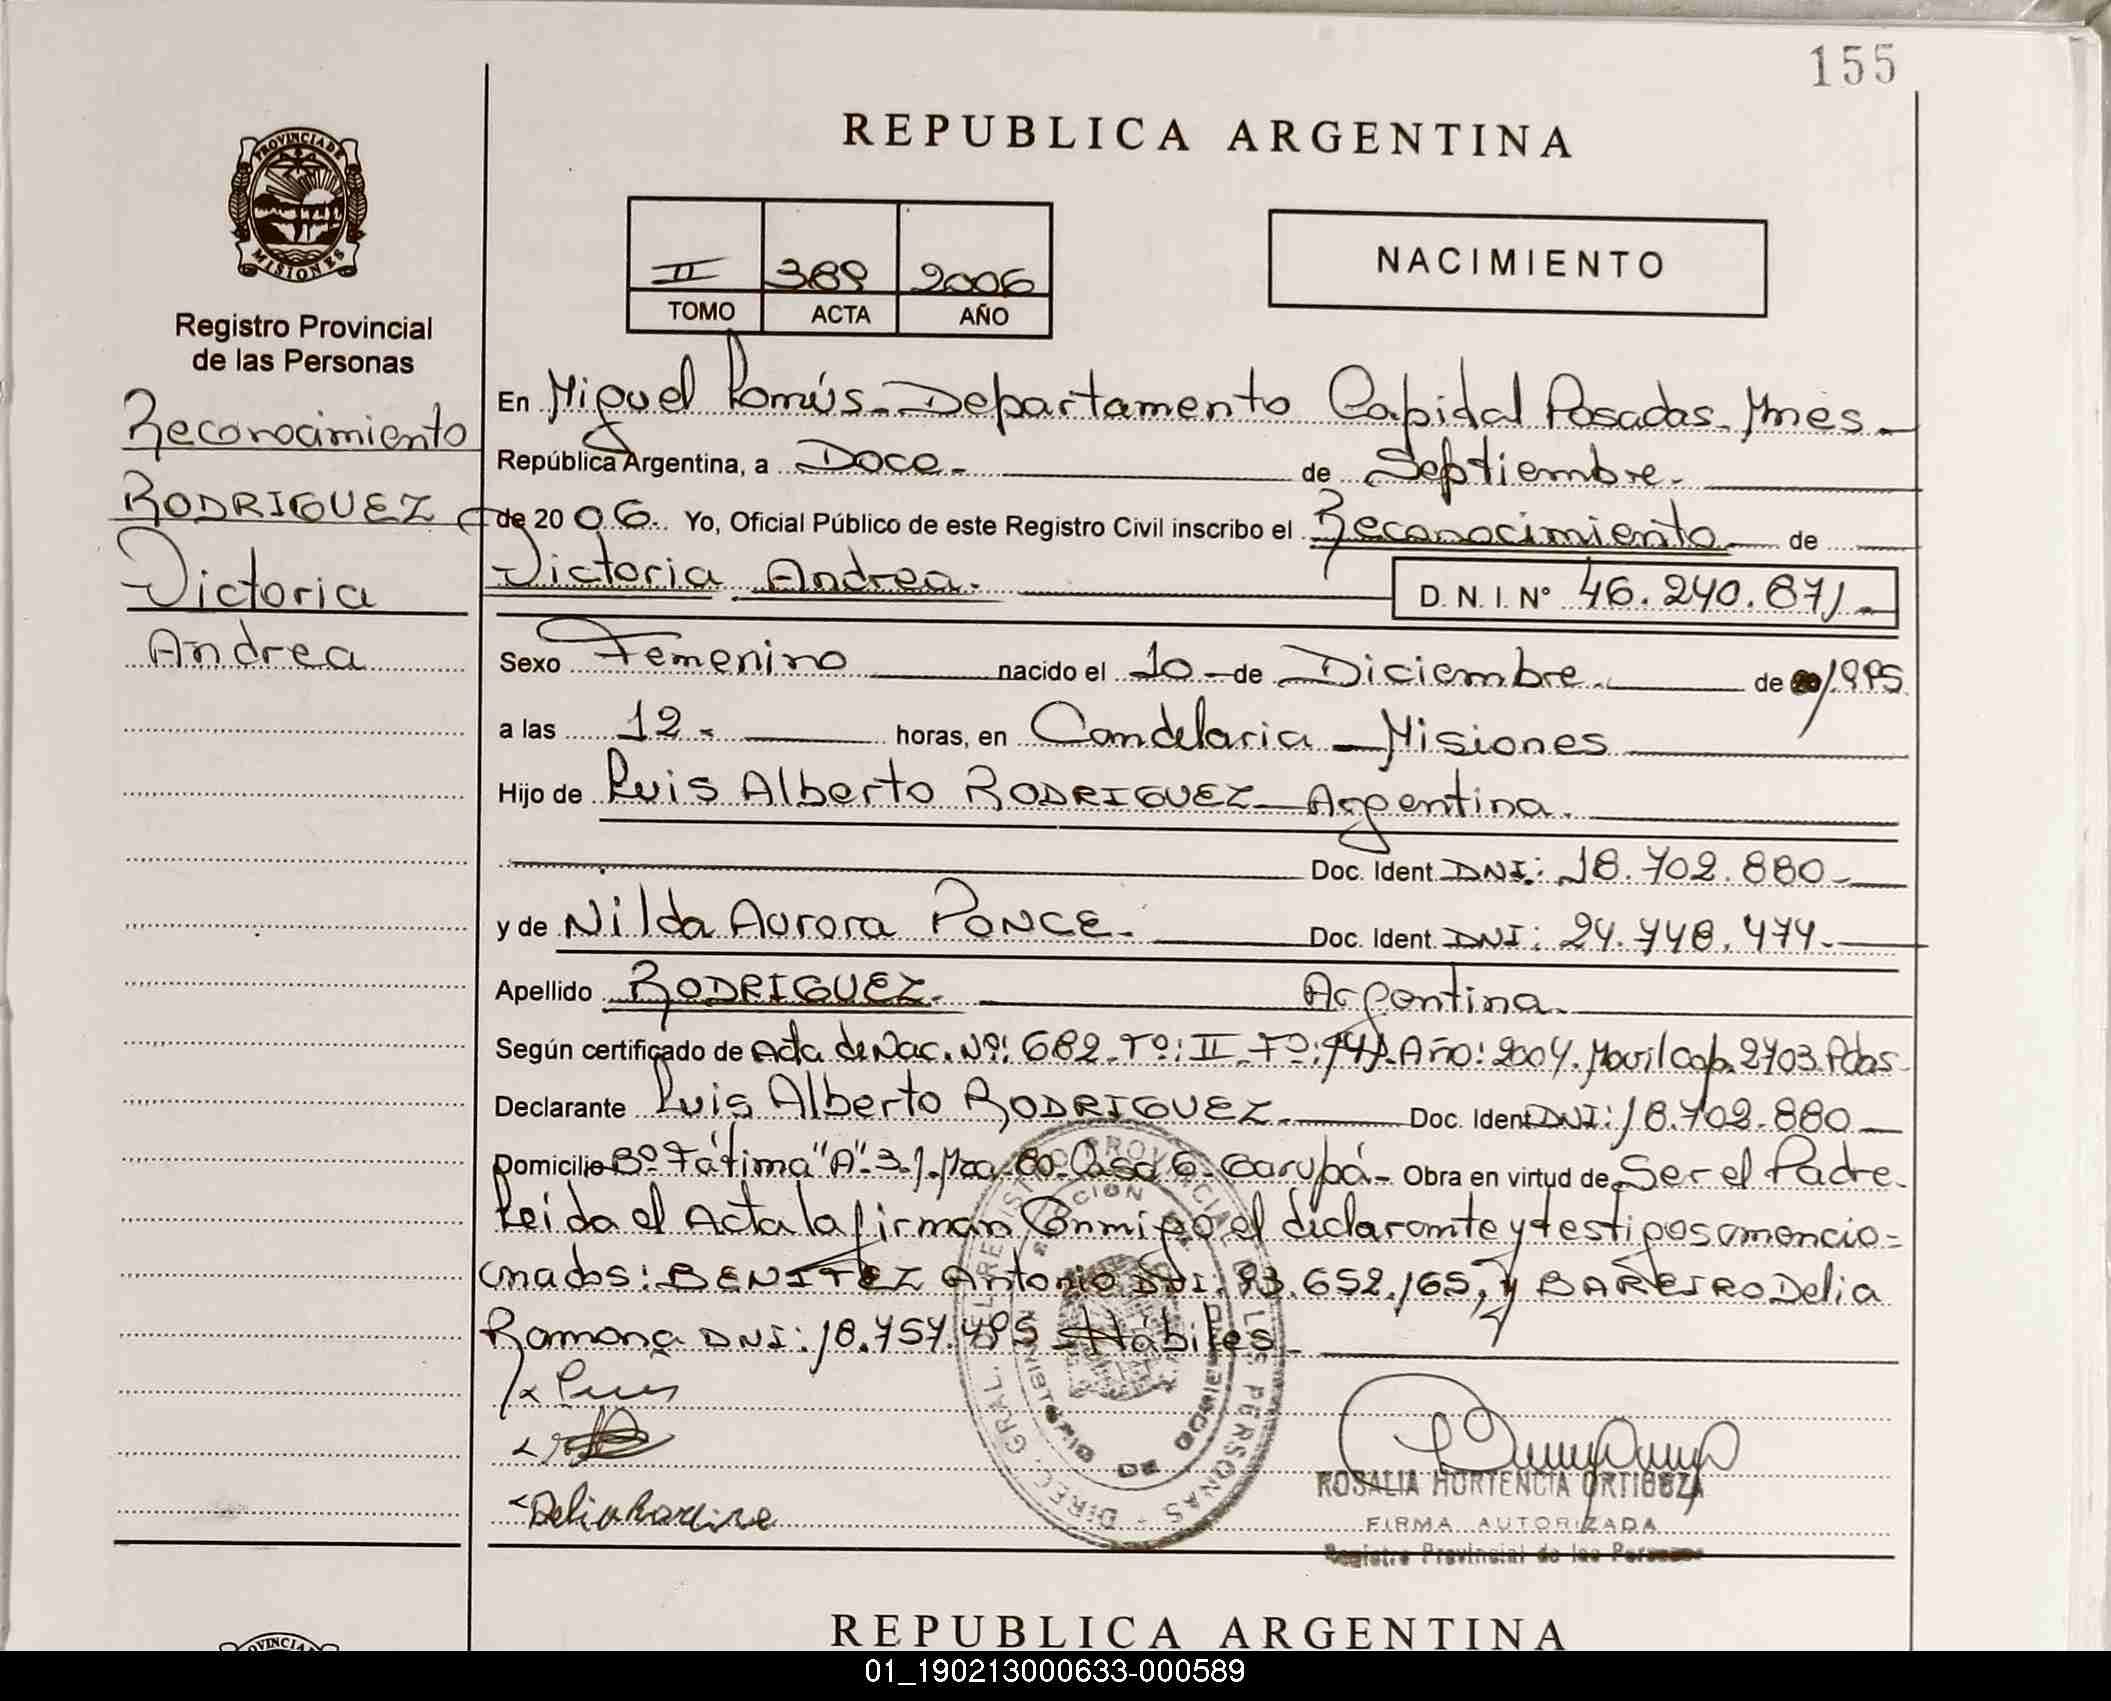 155
REPUBLICA ARGENTINA
PROVINCIA DE MISIONES
II 389 2006
TOMO ACTA AÑO
NACIMIENTO
Registro Provincial
de las Personas
Reconocimiento
RODRIGUEZ
Victoria
Andrea
En Miguel Lanús - Departamento Capital Posadas - Mnes -
República Argentina, a Doce - de Septiembre -
de 20 06. Yo, Oficial Público de este Registro Civil inscribo el Reconocimiento de
Victoria Andrea - D. N. I. Nº 46.240.671 -
Sexo Femenino nacido el 10 - de Diciembre - de 1995
a las 12 - horas, en Candelaria - Misiones
Hijo de Luis Alberto RODRIGUEZ - Argentina -
Doc. Ident. DNI: 18.702.880 -
y de Nilda Aurora PONCE - Doc. Ident. DNI: 24.748.474 -
Apellido RODRIGUEZ - Argentina -
Según certificado de Acta de Nac. Nº: 682 - Tº: II - Fº: Año: 2004. Movil Cap. 2703 Pdas -
Declarante Luis Alberto RODRIGUEZ - Doc. Ident. DNI: 18.702.880 -
Domicilio Bº Fátima "A" - 3.1. Mza. 80 - Casa 6 - Garupá - Obra en virtud de Ser el Padre -
Leida el Acta la firman Conmigo el declarante y testigos a mencio=
nados: BENITEZ Antonio DNI: 93.652.165, y BAREIRO Delia
Ramona DNI: 18.757.495 - Hábiles -
x Luis
Delia Bareiro
ROSALIA HORTENCIA ORTIGOZA
FIRMA AUTORIZADA
Registro Provincial de las Personas
REPUBLICA ARGENTINA
01_190213000633-000589